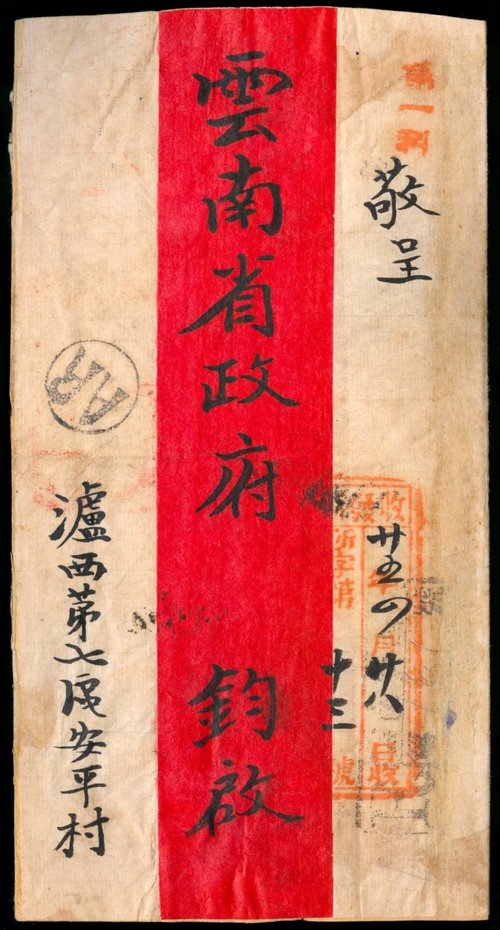 敬呈
廿五 四 廿八
年 月 日收
十三
字第 號
雲南省政府 鈞啟
AR
瀘西第七區安平村